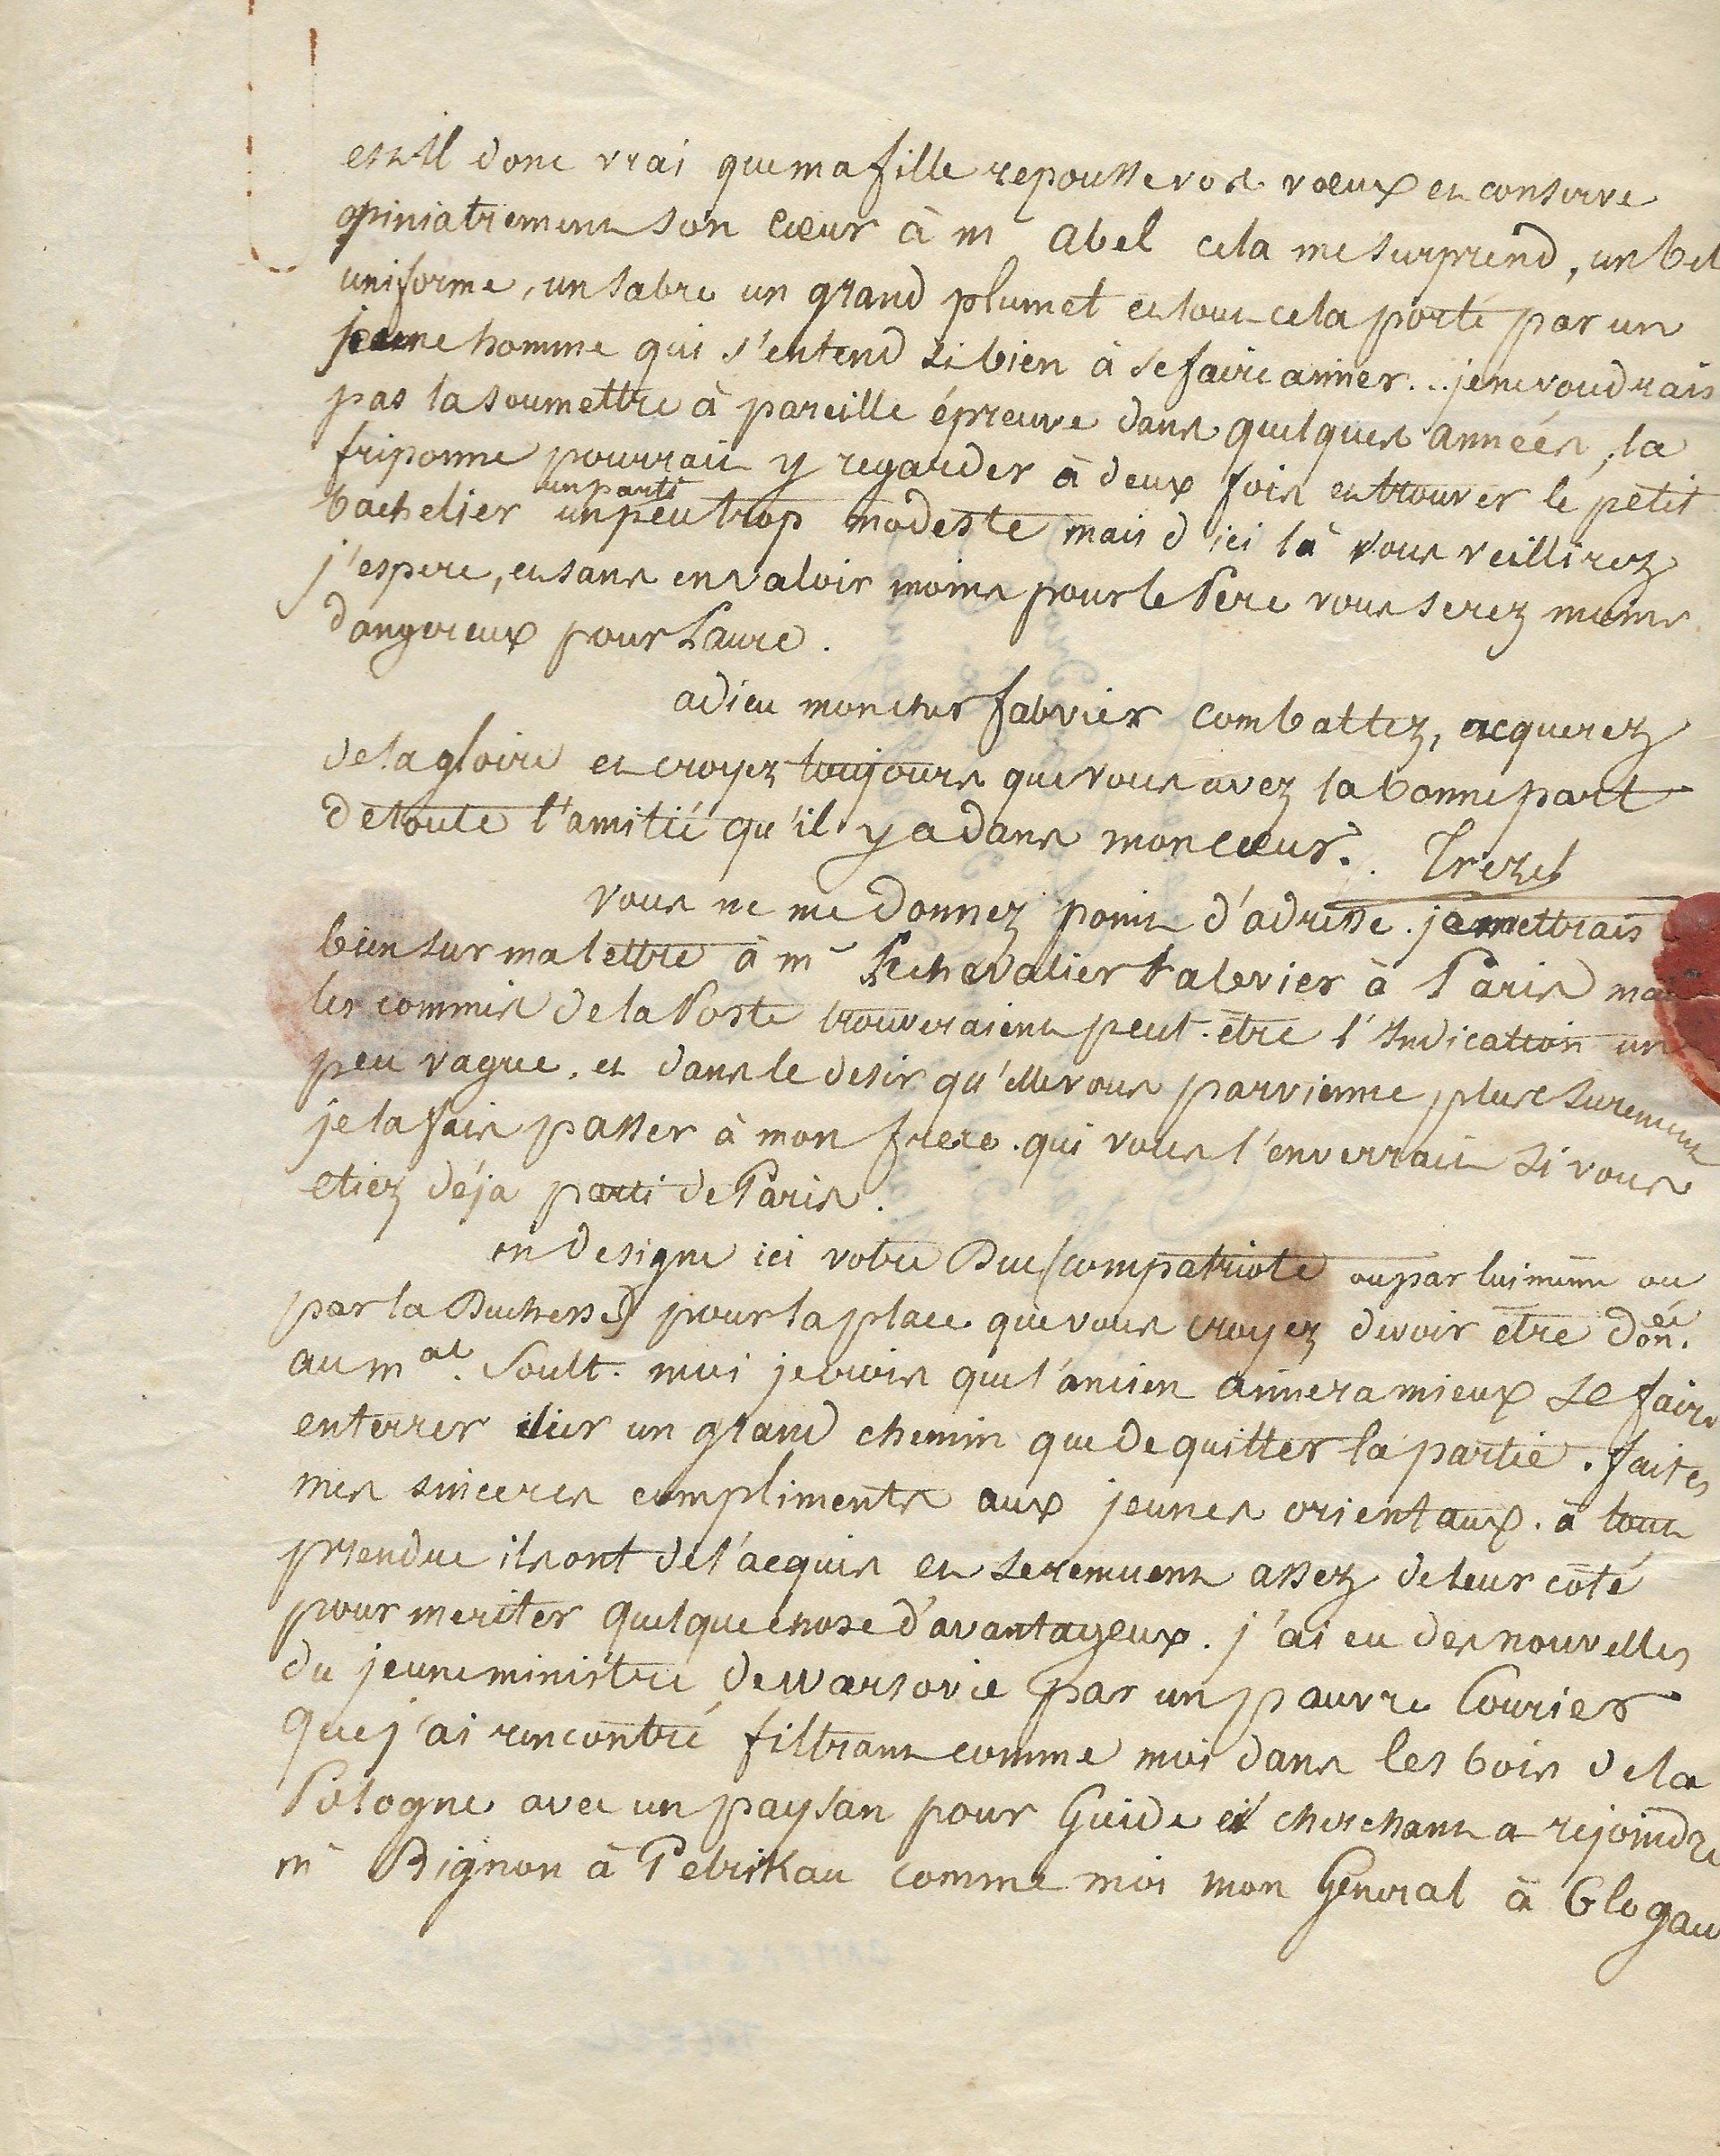 est il donc vrai que ma fille repousse vos vœux et conserve
opiniatrement son cœur à mr abel cela me surprend, un bel
uniforme, un sabre un grand plumet et tout cela porté par un
jeune homme qui s'entend si bien à se faire aimer... je ne voudrais
pas la soumettre à pareille épreuve dans quelques années, la
friponne pourrait y regarder à deux fois et trouver le petit
un parti
bachelier un peu trop modeste mais d'ici là vous vieillirez
j'espere, et sans en valoir moins pour le Pere vous serez moins
dangereux pour Laure.
adieu mon cher fabvier combattez, acquerez
de la gloire et croyez toujours que vous avez la bonne part
de toute l'amitié qu'il y a dans mon cœur. Trezel
vous ne me donnez point d'adresse. je mettrais
bien sur ma lettre à mr le chevalier fabvier à Paris mais
les commis de la Poste trouveraient peut-etre l'indication un
peu vague, et dans le desir qu'elle vous parvienne plus surement
je la fais passer à mon frere qui vous l'enverrait si vous
etiez déja parti de Paris.
on designe ici votre Duc (compatriote ou par lui même ou
par la Duchesse) pour la place que vous croyez devoir être donée
au mal. Soult. moi je crois que l'ancien aimera mieux se faire
enterrer sur un grand chemin que de quitter la partie. faites
mes sinceres compliments aux jeunes orientaux. à tout
prendre ils ont de l'acquis et se remuent assez de leur côté
pour meriter quelque chose d'avantageux. j'ai eu des nouvelles
du jeune ministre de warsovie par un pauvre Courier
que j'ai rencontré filtrant comme moi dans les bois de la
Pologne avec un paysan pour Guide et cherchant a rejoindre
mr Bignon à Petrikau comme moi mon Général à Glogau